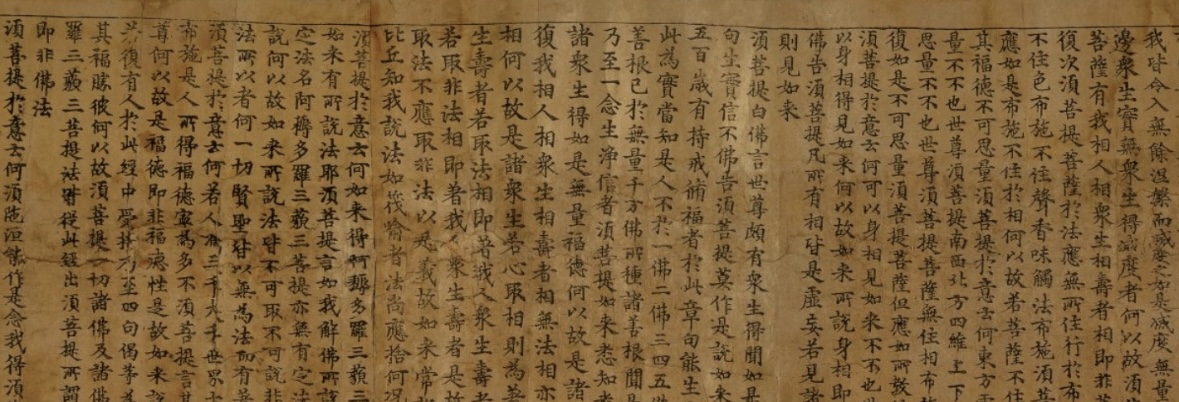 我皆令入無餘涅槃而滅度之如是滅度無量
邊衆生實無衆生得滅度者何以故須
菩薩有我相人相衆生相壽者相即非菩
復次須菩提菩薩於法應無所住行於布
不住色布施不住聲香味觸法布施須菩
應如是布施不住於相何以故若菩薩不住
其福德不可思量須菩提於意云何東方
量不不也世尊須菩提南西北方四維上下
思量不不也世尊須菩提菩薩無住相布
復如是不可思量須菩提菩薩但應如所教
須菩提於意云何可以身相見如來不不也
以身相得見如來何以故如來所說身相即
佛告須菩提凡所有相皆是虛妄若見諸
則見如來
須菩提白佛言世尊頗有衆生得聞如是
句生實信不佛告須菩提莫作是說如來
五百歲有持戒脩福者於此章句能生
此為實當知是人不於一佛二佛三四五佛
善根已於無量千万佛所種諸善根聞是
乃至一念生淨信者須菩提如來悉知
諸衆生得如是無量福德何以故是諸
復我相人相衆生相壽者相無法相亦
相何以故是諸衆生若心取相則為著
生壽者若取法相即著我人衆生壽
若取非法相即著我人衆生壽者是故
取法不應取非法以是義故如來常
比丘知我說法如筏喻者法尚應捨何況
須菩提於意云何如來得阿耨多羅三藐三
如來有所說法耶須菩提言如我解佛所說
定法名阿耨多羅三藐三菩提亦無有定法
說何以故如來所說法皆不可取不可說非
法所以者何一切賢聖皆以無為法而有差
須菩提於意云何若人滿三千大千世界七
布施是人所得福德寧為多不須菩提言甚
尊何以故是福德即非福德性是故如來說
若復有人於此經中受持乃至四句偈等為
其福勝彼何以故須菩提一切諸佛及諸佛
羅三藐三菩提法皆從此經出須菩提所謂
即非佛法
須菩提於意云何須陁洹能作是念我得須